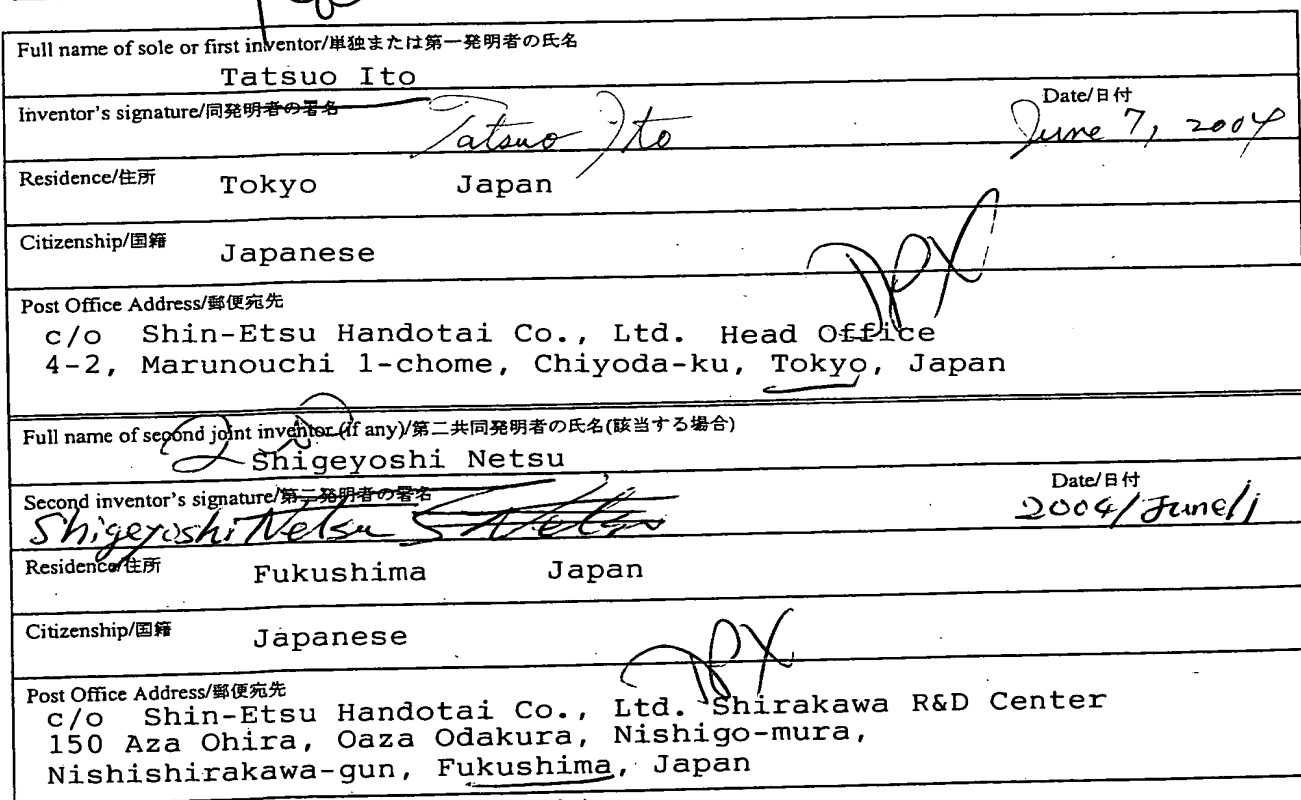 Full name of sole or first inventor/単独または第一発明者の氏名
Tatsuo Ito
Inventor's signature/同発明者の署名
Tatsuo Ito
Date/日付
June 7, 2004
Residence/住所 Tokyo Japan
Citizenship/国籍 Japanese
JPX
Post Office Address/郵便宛先
c/o Shin-Etsu Handotai Co., Ltd. Head Office
4-2, Marunouchi 1-chome, Chiyoda-ku, Tokyo, Japan
Full name of second joint inventor (if any)/第二共同発明者の氏名(該当する場合)
Shigeyoshi Netsu
Second inventor's signature/第二発明者の署名
Shigeyoshi Netsu S. Netsu
Date/日付
2004/June/1
Residence/住所 Fukushima Japan
Citizenship/国籍 Japanese
JPX
Post Office Address/郵便宛先
c/o Shin-Etsu Handotai Co., Ltd. Shirakawa R&D Center
150 Aza Ohira, Oaza Odakura, Nishigo-mura,
Nishishirakawa-gun, Fukushima, Japan